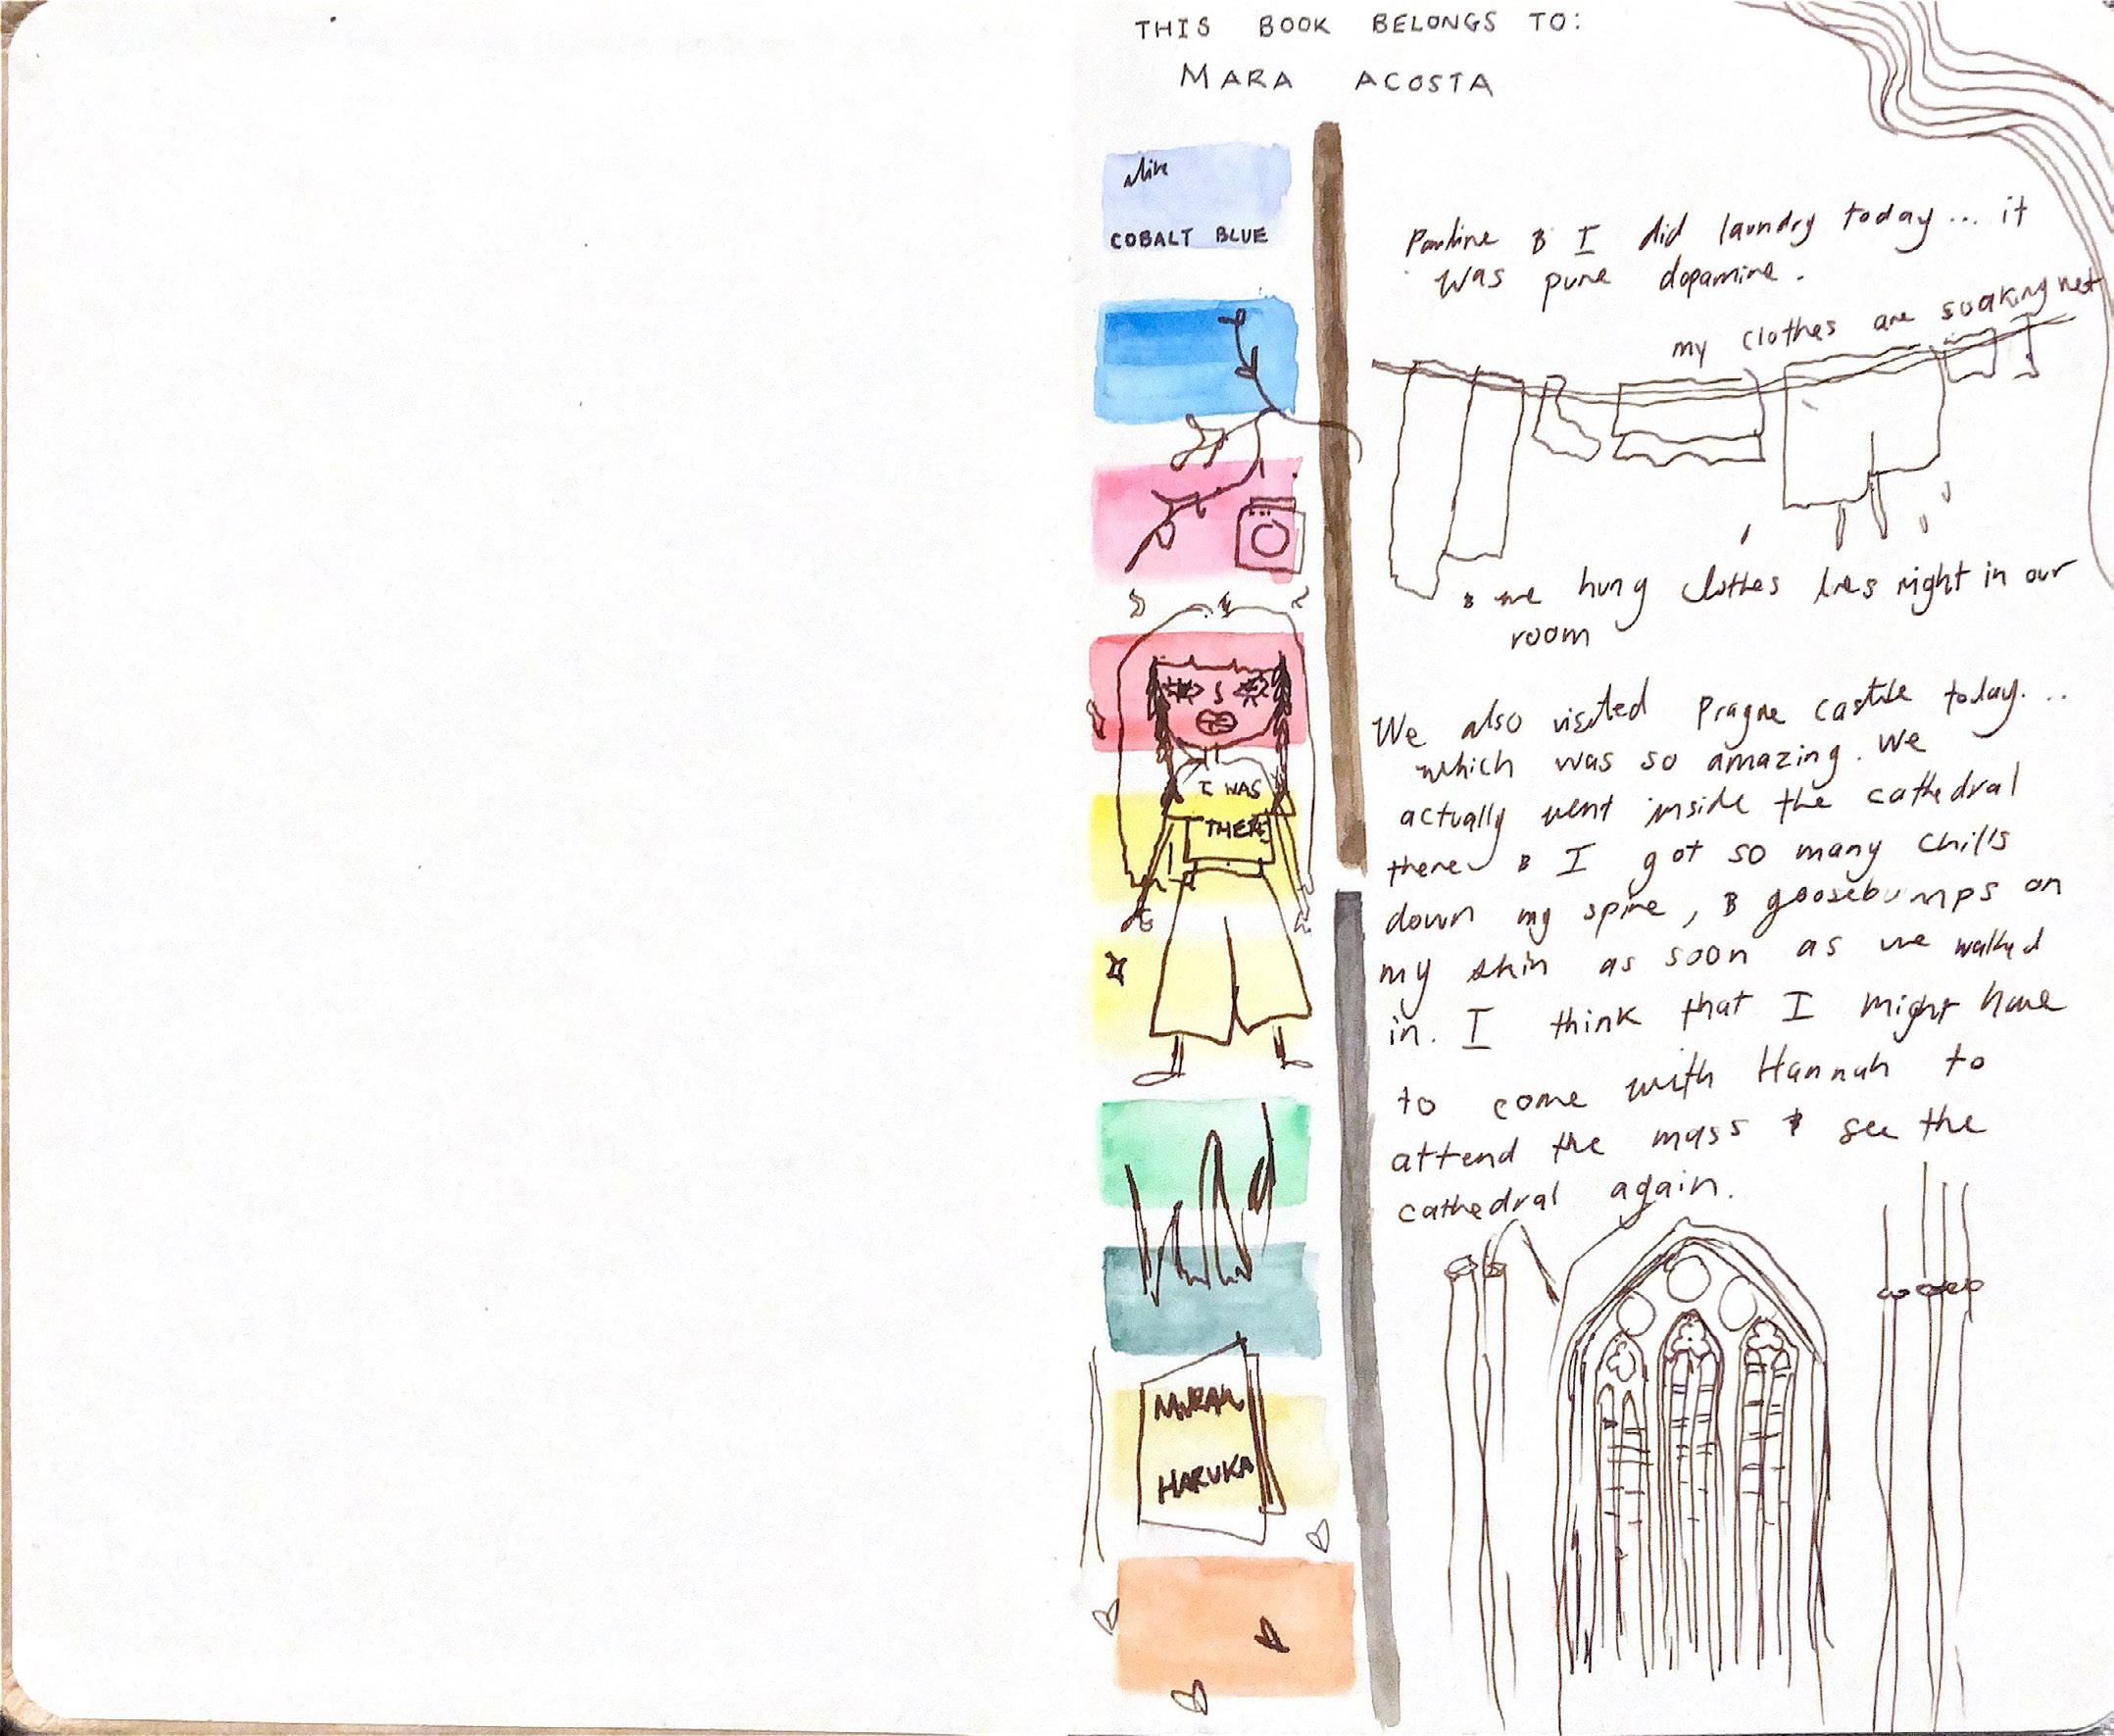 THIS BOOK BELONGS TO:
MARA ACOSTA
COBALT BLUE
Pauline & I did laundry today... it
was pure dopamine.
my clothes are soaking wet
& we hung clothes lines right in our
room
We also visited Prague castle today...
which was so amazing. We
actually went inside the cathedral
there & I got so many chills
down my spine, & goosebumps on
my skin as soon as we walked
in. I think that I might have
to come with Hannah to
attend the mass & see the
cathedral again.
I WAS
THERE
HARUKA